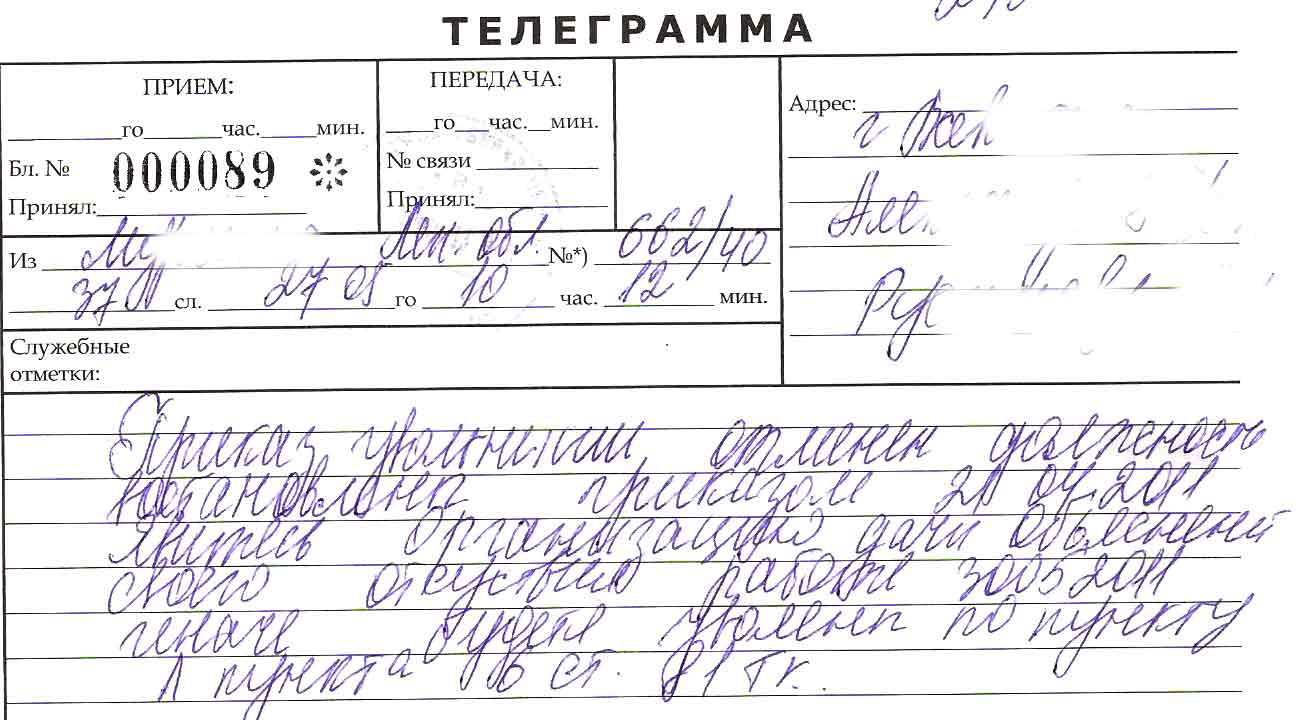 ТЕЛЕГРАММА
ПРИЕМ:
го час. мин.
Бл. № 000089
Принял:
ПЕРЕДАЧА:
го час. мин.
№ связи
Принял:
Адрес:
г
Из Лен. обл. №*) 662/40
37 сл. 27 05 го 10 час. 12 мин.
Служебные
отметки:
Приказ увольнении отменен должность
востановлены приказом 2011
явитесь организацию дачи объяснений
своего отсуствия работе 30052011
иначе будете уволены по пункту
А пункта 6 ст. 81 ТК.